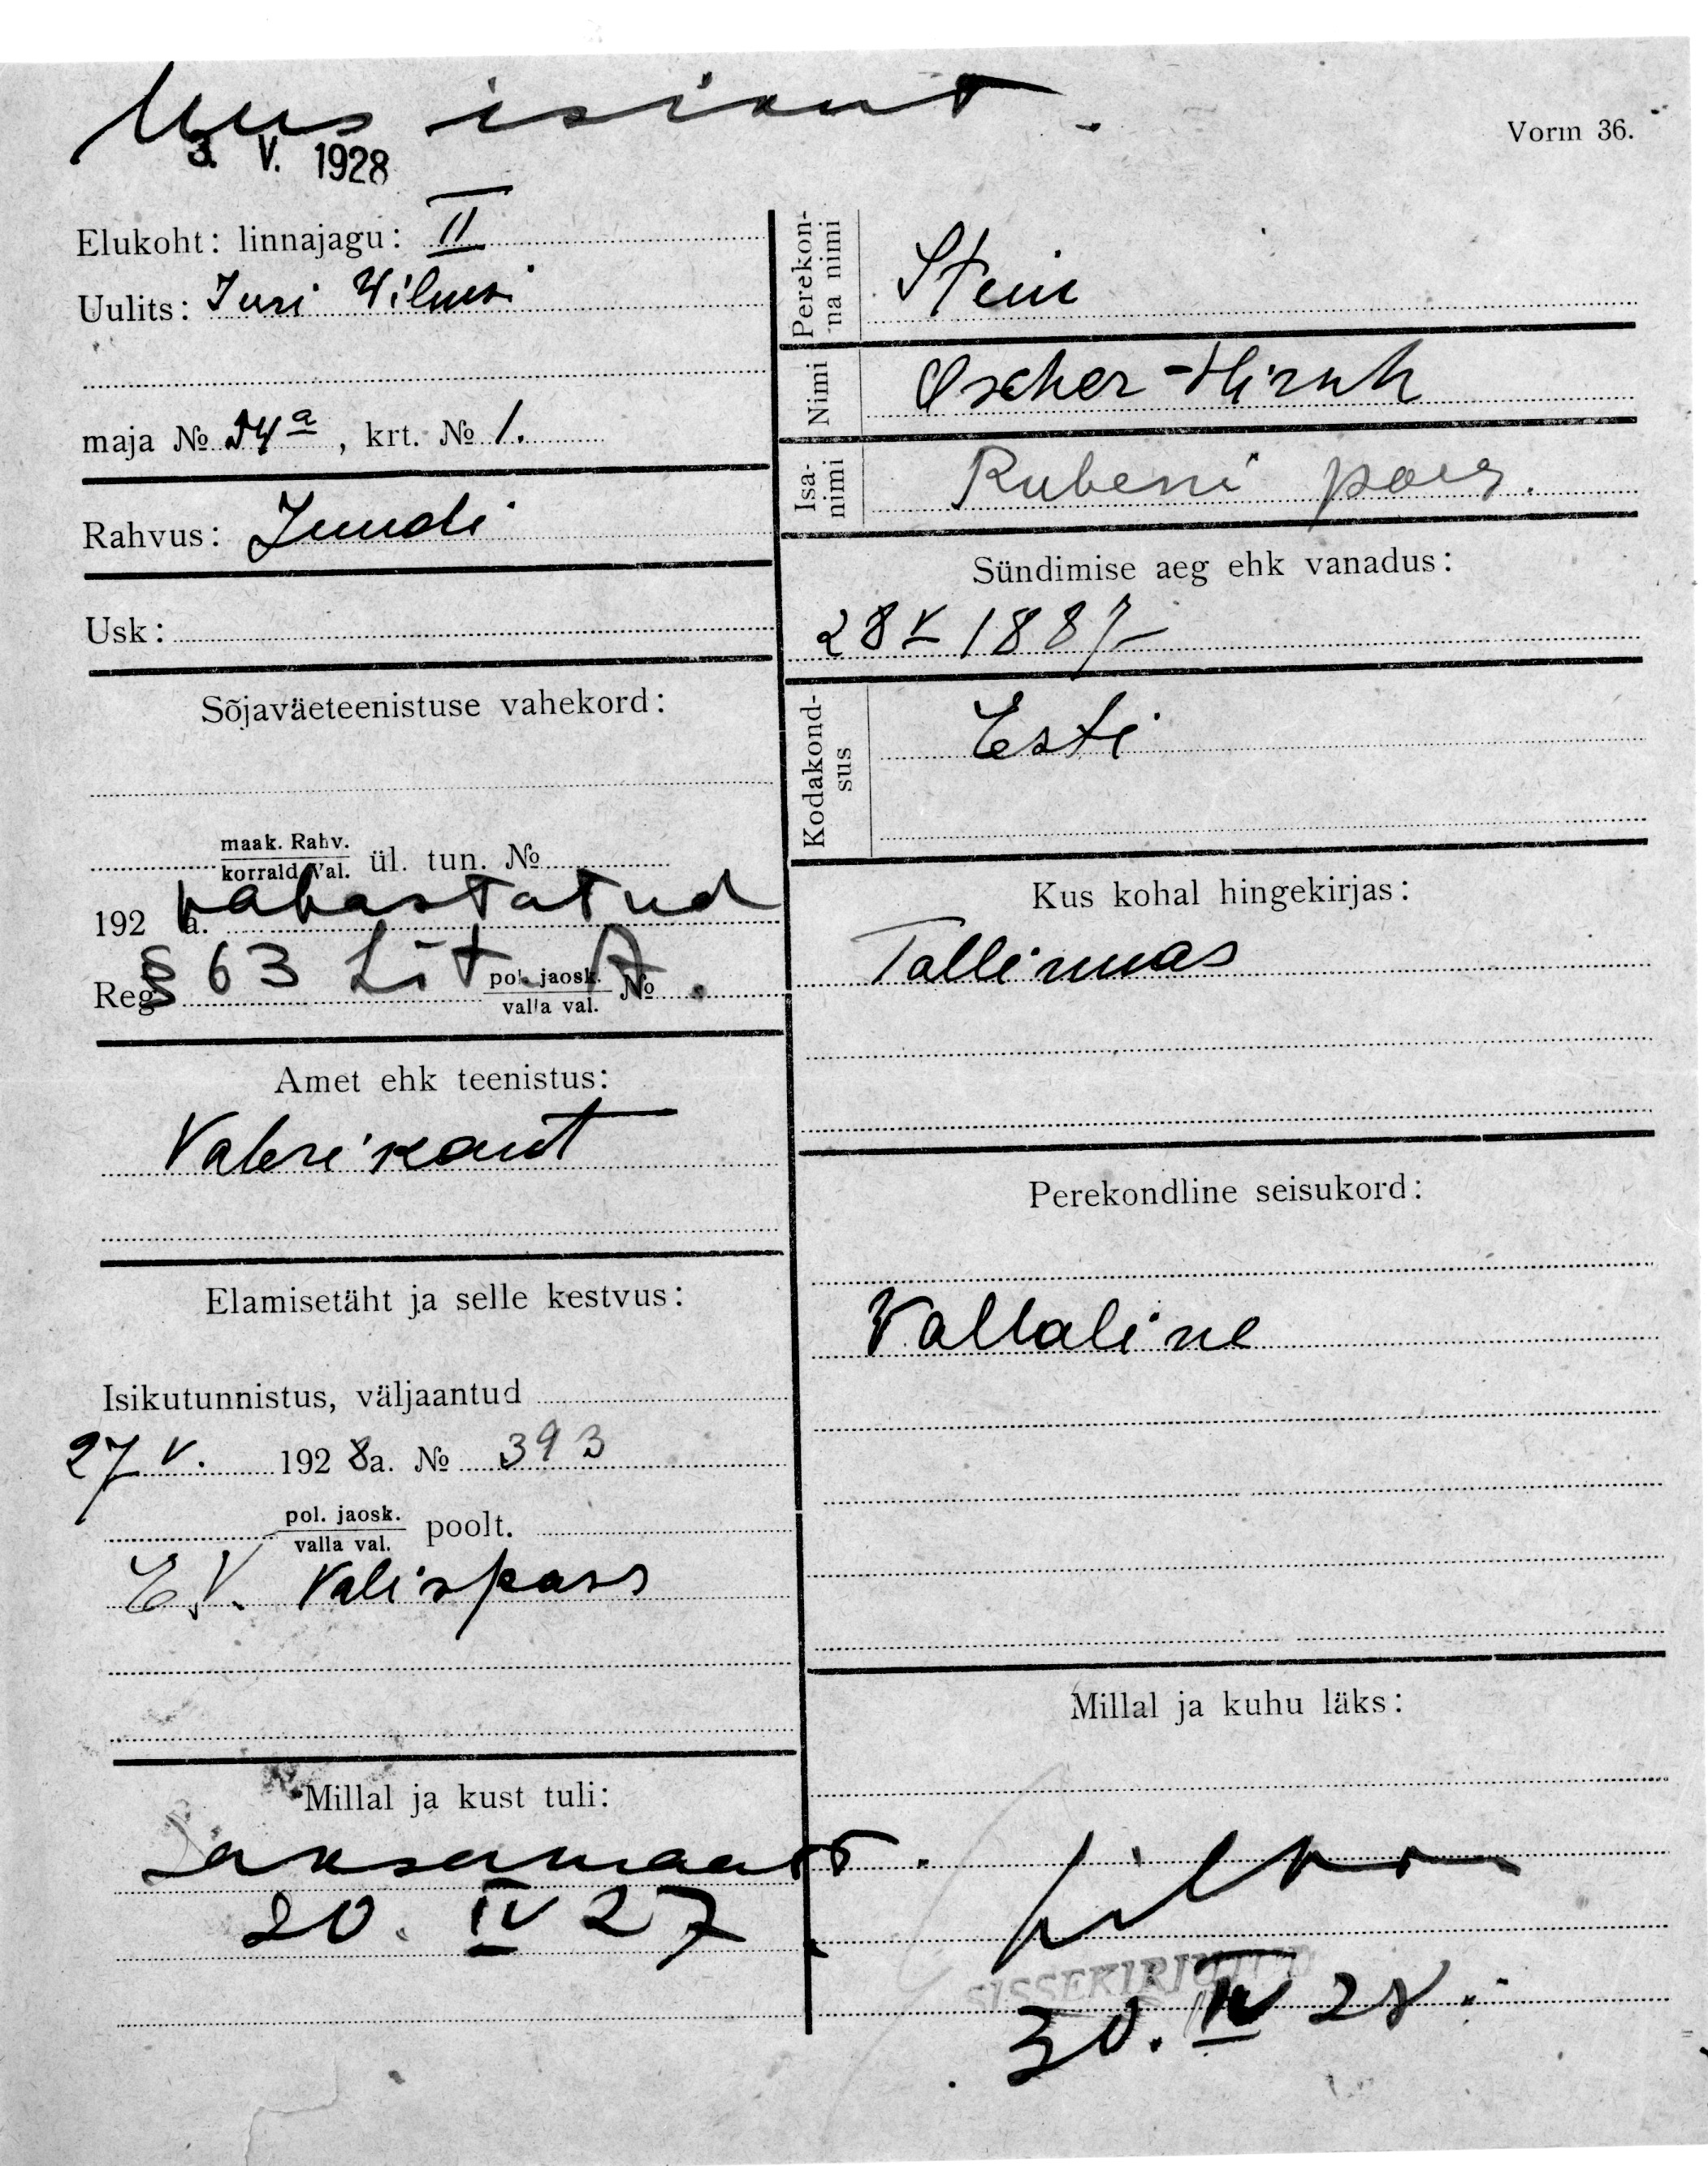 Uus isikut.
3. V. 1928
Vorm 36.
Elukoht: linnajagu: II
Uulits: Juri Wilmsi
maja № 24a, krt. № 1.
Rahvus: Juudi
Usk:
Sõjaväeteenistuse vahekord:
maak. Rahv.
korrald. Val. ül. tun. №
192 a. vabastatud
Reg. § 63 Lit. A.
pol. jaosk.
valla val. №
Amet ehk teenistus:
Vabrikant
Elamisetäht ja selle kestvus:
Isikutunnistus, väljaantud
27 V. 1928 a. № 393
pol. jaosk.
valla val. poolt.
E.V. Valispass
Millal ja kust tuli:
Saksamaalt.
20. IV 27.
Perekon-
na nimi
Stein
Nimi
Oscher-Hirsch
Isa-
nimi
Rubeni poeg.
Sündimise aeg ehk vanadus:
28 V 1887
Kodakond-
sus
Esti
Kus kohal hingekirjas:
Tallinnas
Perekondline seisukord:
Vallaline
Millal ja kuhu läks:
SISSEKIRJUTUD
30. IV 28.